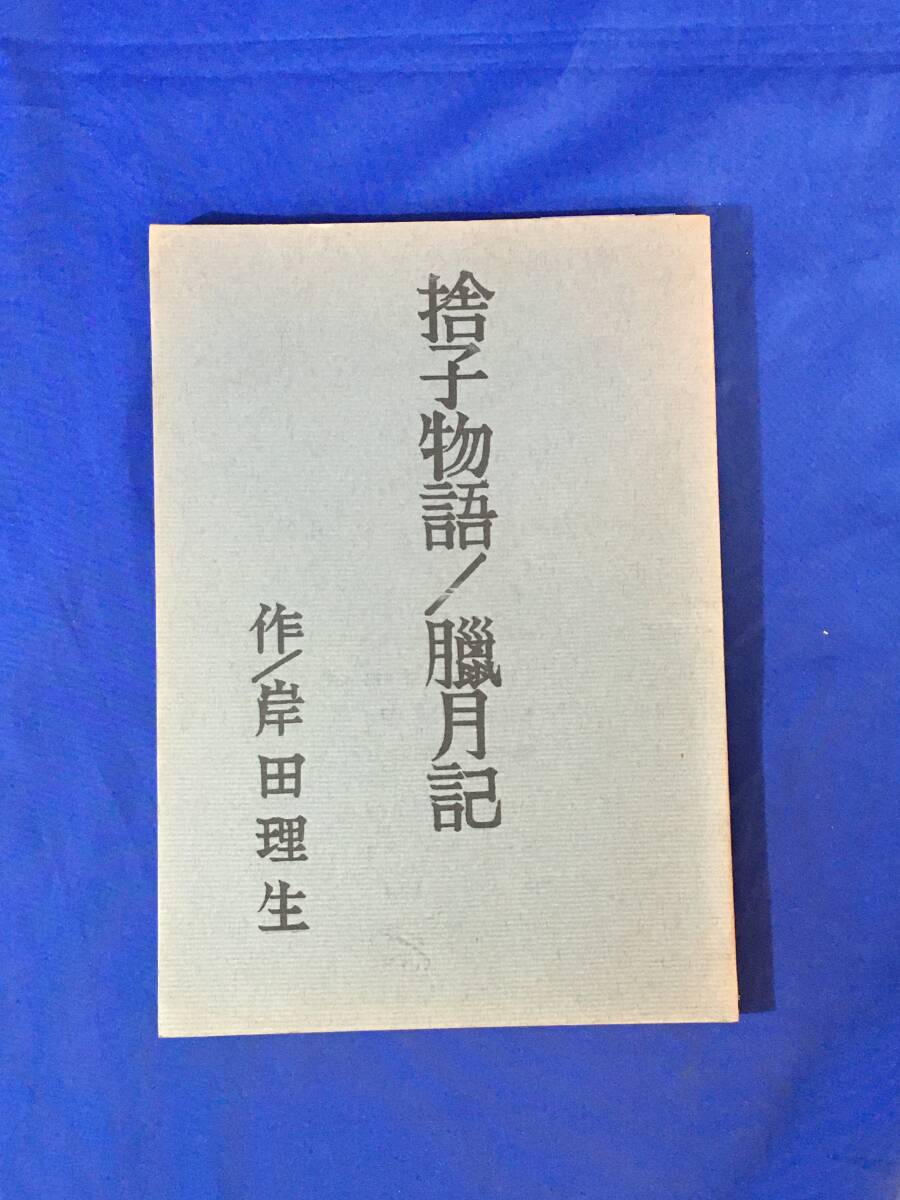 捨子物語／臘月記
作／岸田理生